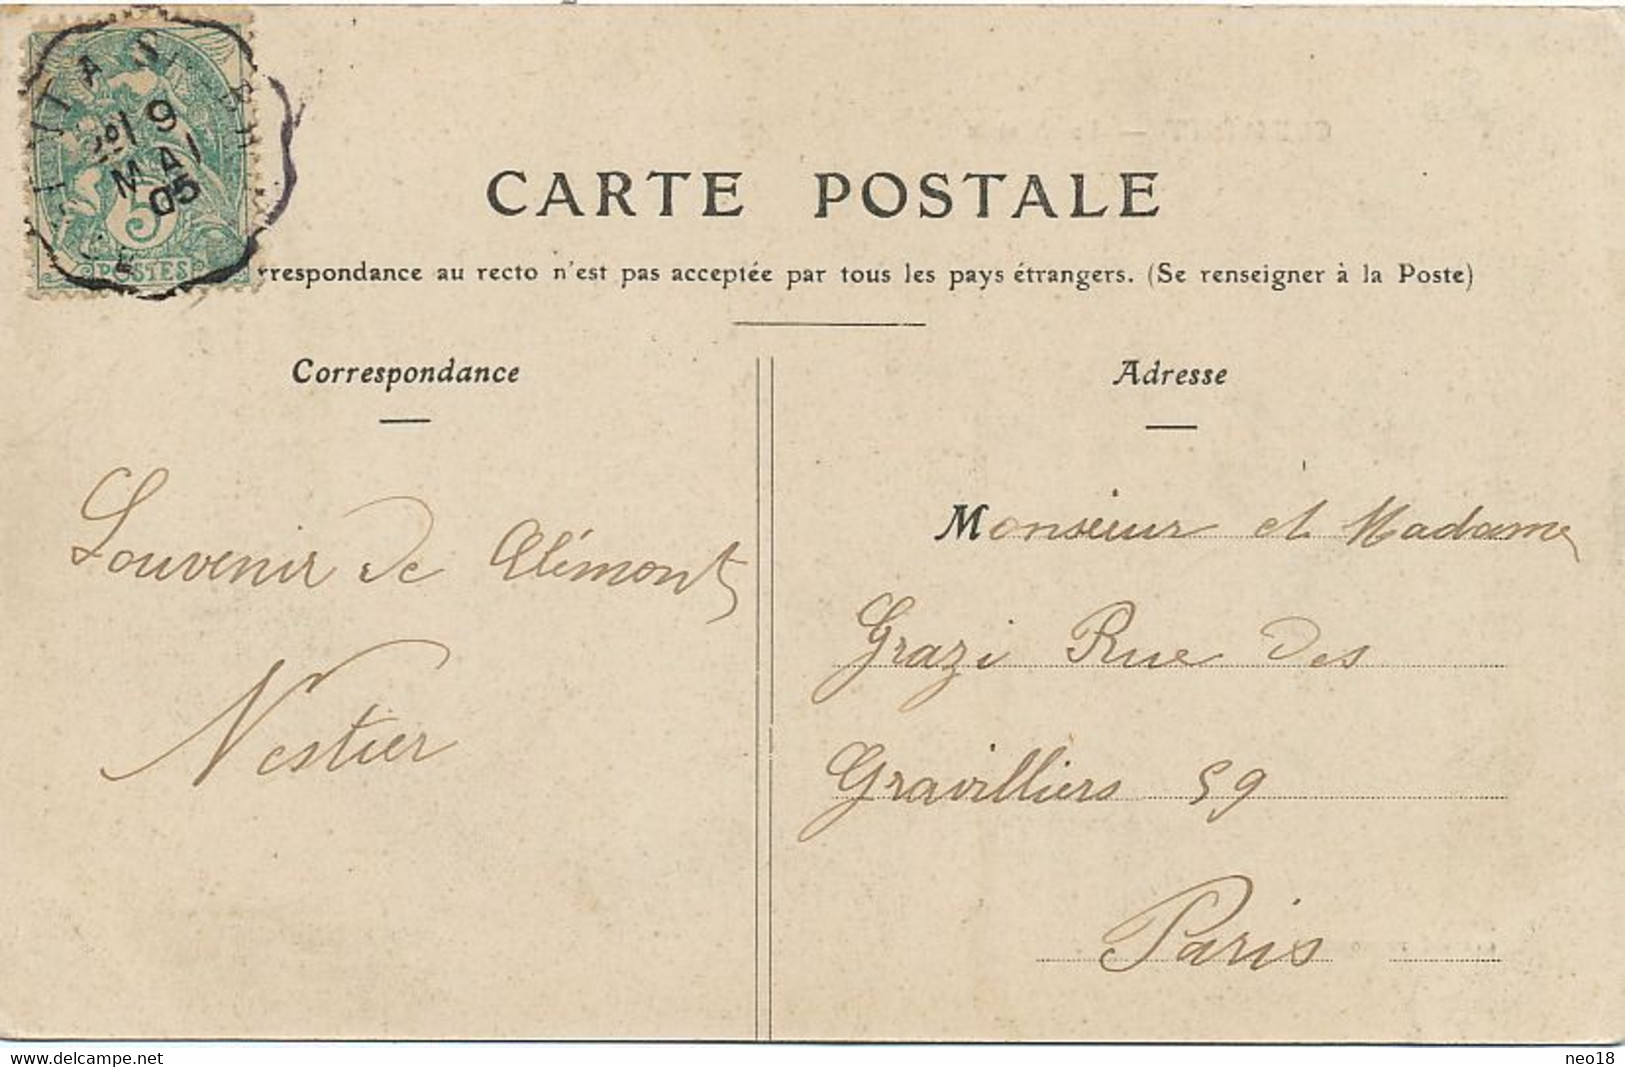 9
MAI
05
5
POSTES
CARTE POSTALE
respondance au recto n'est pas acceptée par tous les pays étrangers. (Se renseigner à la Poste)
Correspondance
Souvenir de Clémont
Nestier
Adresse
Monsieur et Madame
Grazi Rue des
Gravilliers 59
Paris
www.delcampe.net
neo18